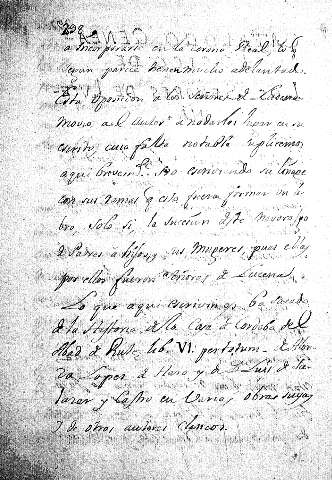 292
a incorporarse en la corona Real, los q.e
tienen mucho adelantado.
Esta oposicion a los Señores de Lucena
movio a el Autor a no darles lugar en su
escrito, cuia falta notable supliremos
aqui brevem.te No escriviendo su linage
con sus ramas q esto fuera formar un li-
bro, solo si, la succesion deste Mayorazgo
de Padres a hijos y sus Mugeres, pues ellas
por ellos fueron Señoras de Lucena
Lo que aqui escrivimos ba sacado
de la Historia de la Casa de Cordoba del
Abad de Rute lib. VI. per totum. de Alon-
Lopez de Haro y de D. Luis de Sa-
lazar y Castro en varias obras suyas
y de otros autores clasicos.